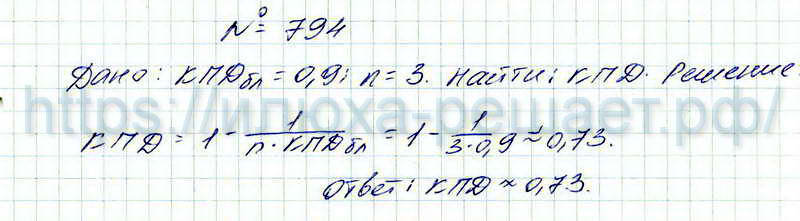 № 794
Дано: КПДбл = 0,9; n = 3. Найти: КПД. Решение:
https://илюха-решает.рф/
КПД = 1 - 1/(n · КПДбл) = 1 - 1/(3·0,9) ≈ 0,73.
Ответ: КПД ≈ 0,73.